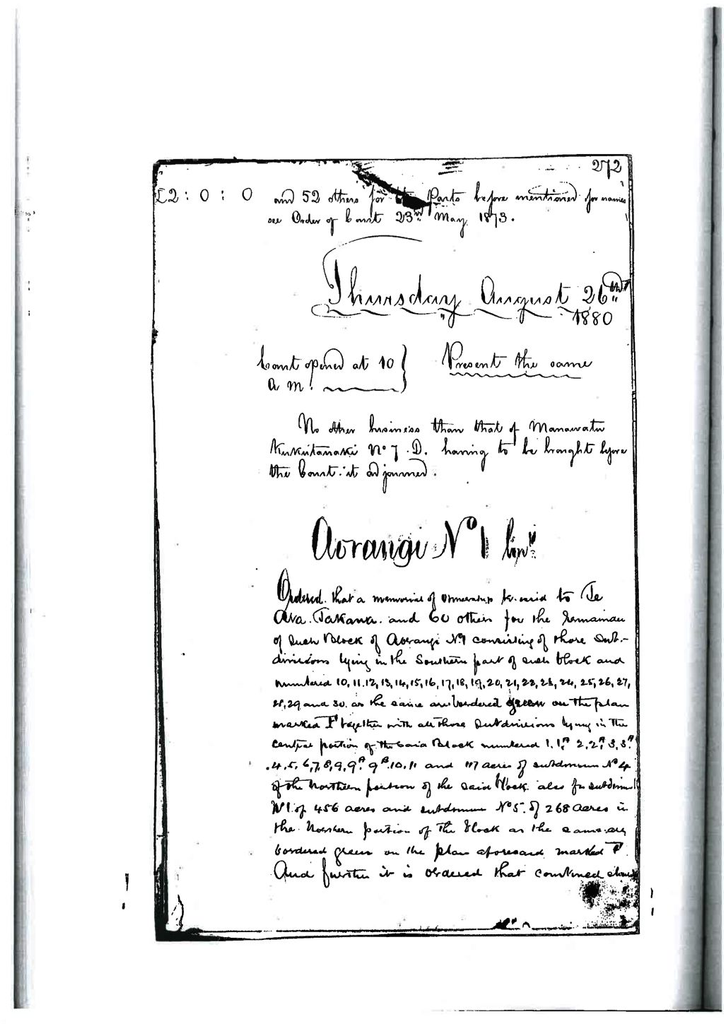 272
£2 : 0 : 0 and 52 others for the Parts before mentioned for names
see Order of Court 23rd May 1873.
Thursday August 26th
1880
Court opened at 10 } Present the same
a m.
No other business than that of Manawatu
Kukutauaki No 7. D. having to be brought before
the Court it adjourned.
Aorangi No 1
Ordered that a memorial of ownership be to Te
Ara Takana and 60 others for the Remainder
of such Block of Aorangi No 1 consisting of those Sub-
divisions lying in the Southern part of such block and
numbered 10, 11, 12, 13, 14, 15, 16, 17, 18, 19, 20, 21, 22, 23, 24, 25, 26, 27,
28, 29 and 30 as the same are bordered green on the plan
marked F together with all those Subdivisions lying in the
central portion of the said Block numbered 1, 1a 2, 2a 3, 3a
4, 5, 6, 7, 8, 9, 9a 9b 10, 11 and 117 acres of subdivision No 4
of the Northern portion of the said block also
No 1 of 456 acres and subdivision No 5 of 268 acres in
the Northern portion of the Block as the same are
bordered green on the plan aforesaid marked F
And further it is ordered that